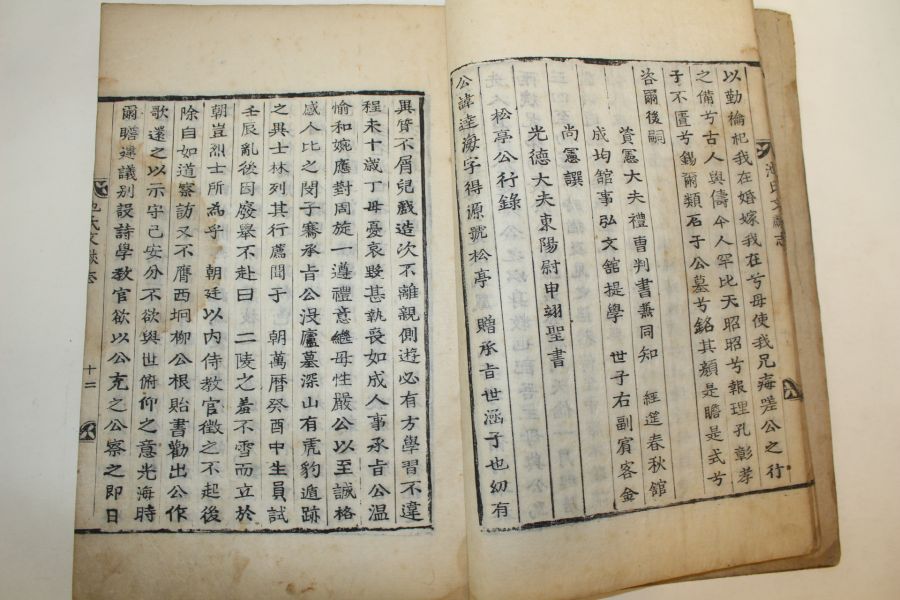 池氏文獻志
以勤倫杞我在婚嫁我在兮母使我兄悔嗟公之行
之備兮古人與儔今人罕比天昭昭兮報理孔彰孝
子不匱兮錫爾類石于公墓兮銘其顔是瞻是式兮
咨爾後嗣
資憲大夫禮曹判書兼同知 經筵春秋館
成均館事弘文館提學 世子右副賓客金
尚憲 撰
光德大夫東陽尉申翊聖書
松亭公行錄
公諱達海字得源號松亭 贈承旨世涵子也幼有
異質不屑兒戲造次不離親側遊必有方學習不違
程未十歲丁母憂哀毀甚執喪如成人事承旨公溫
愉和婉應對周旋一遵禮意繼母性嚴公以至誠格
感人比之閔子騫承旨公沒廬墓深山有虎豹遁跡
之異士林列其行薦聞于 朝萬曆癸酉中生員試
壬辰亂後因廢舉不赴曰 二陵之羞不雪而立於
朝豈烈士所爲乎 朝廷以內侍教官徵之不起後
除自如道察訪又不膺西坰柳公根貽書勸出公作
歌還之以示守己安分不欲與世俯仰之意光海時
爾瞻建議別設詩學教官欲以公充之公察之即日
池氏文獻志
十二